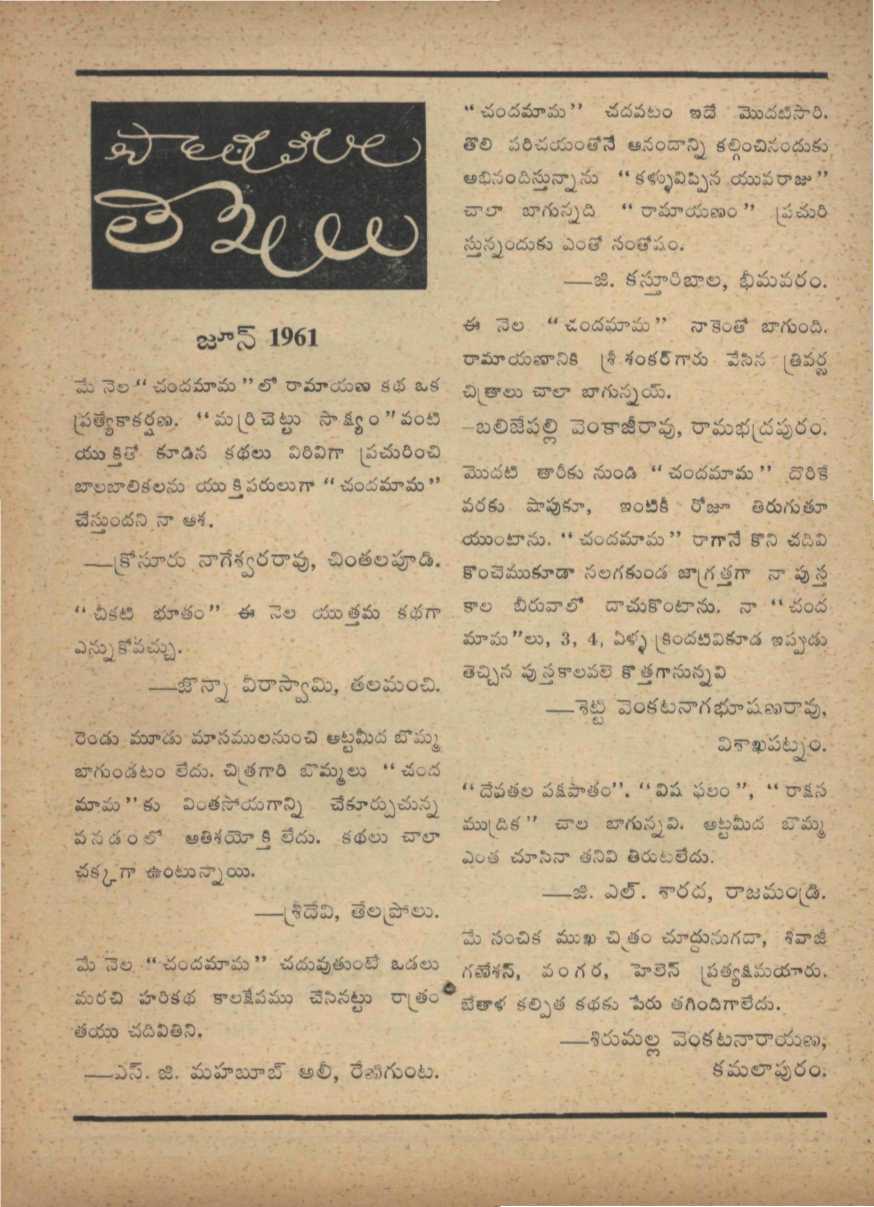 పాఠకుల
లేఖలు
జూన్ 1961
మే నెల “చందమామ”లో రామాయణ కథ ఒక
ప్రత్యేకాకర్షణ. “మర్రిచెట్టు సాక్ష్యం” వంటి
యుక్తితో కూడిన కథలు విరివిగా ప్రచురించి
బాలబాలికలను యుక్తిపరులుగా “చందమామ”
చేస్తుందని నా ఆశ.
—క్రోసూరు నాగేశ్వరరావు, చింతలపూడి.
“చీకటి భూతం” ఈ నెల యుత్తమ కథగా
ఎన్నుకోవచ్చు.
—జొన్నా వీరాస్వామి, తలమంచి.
రెండు మూడు మాసములనుంచి అట్టమీద బొమ్మ
బాగుండటం లేదు. చిత్రగారి బొమ్మలు “చంద
మామ”కు వింతసోయగాన్ని చేకూర్చుచున్న
వనడంలో అతిశయోక్తి లేదు. కథలు చాలా
చక్కగా ఉంటున్నాయి.
—శ్రీదేవి, తేలప్రోలు.
మే నెల “చందమామ” చదువుతుంటే ఒడలు
మరచి హరికథ కాలక్షేపము చేసినట్టు రాత్రం
తయు చదివితిని.
—ఎస్. జి. మహబూబ్ అలీ, రేణిగుంట.
“చందమామ” చదవటం ఇదే మొదటిసారి.
తొలి పరిచయంతోనే ఆనందాన్ని కల్గించినందుకు
అభినందిస్తున్నాను “కళ్ళువిప్పిన యువరాజు”
చాలా బాగున్నది “రామాయణం” ప్రచురి
స్తున్నందుకు ఎంతో సంతోషం.
—జి. కస్తూరిబాల, భీమవరం.
ఈ నెల “చందమామ” నాకెంతో బాగుంది.
రామాయణానికి శ్రీ శంకర్‌గారు వేసిన త్రివర్ణ
చిత్రాలు చాలా బాగున్నయ్.
—బలిజేపల్లి వెంకాజీరావు, రామభద్రపురం.
మొదటి తారీకు నుండి “చందమామ” దొరికే
వరకు షాపుకూ, ఇంటికీ రోజూ తిరుగుతూ
యుంటాను. “చందమామ” రాగానే కొని చదివి
కొంచెముకూడా నలగకుండ జాగ్రత్తగా నా పుస్త
కాల బీరువాలో దాచుకొంటాను. నా “చంద
మామ”లు, 3, 4, ఏళ్ళ క్రిందటివికూడ ఇప్పుడు
తెచ్చిన పుస్తకాలవలె కొత్తగానున్నవి
—శెట్టి వెంకటనాగభూషణరావు,
విశాఖపట్నం.
“దేవతల పక్షపాతం”. “విష ఫలం”, “రాక్షస
ముద్రిక” చాల బాగున్నవి. అట్టమీద బొమ్మ
ఎంత చూసినా తనివి తీరుటలేదు.
—జి. ఎల్. శారద, రాజమండ్రి.
మే సంచిక ముఖ చిత్రం చూద్దునుగదా, శివాజీ
గణేశన్, వంగర, హెలెన్ ప్రత్యక్షమయారు.
బేతాళ కల్పిత కథకు పేరు తగిందిగాలేదు.
—శిరుమల్ల వెంకటనారాయణ,
కమలాపురం.